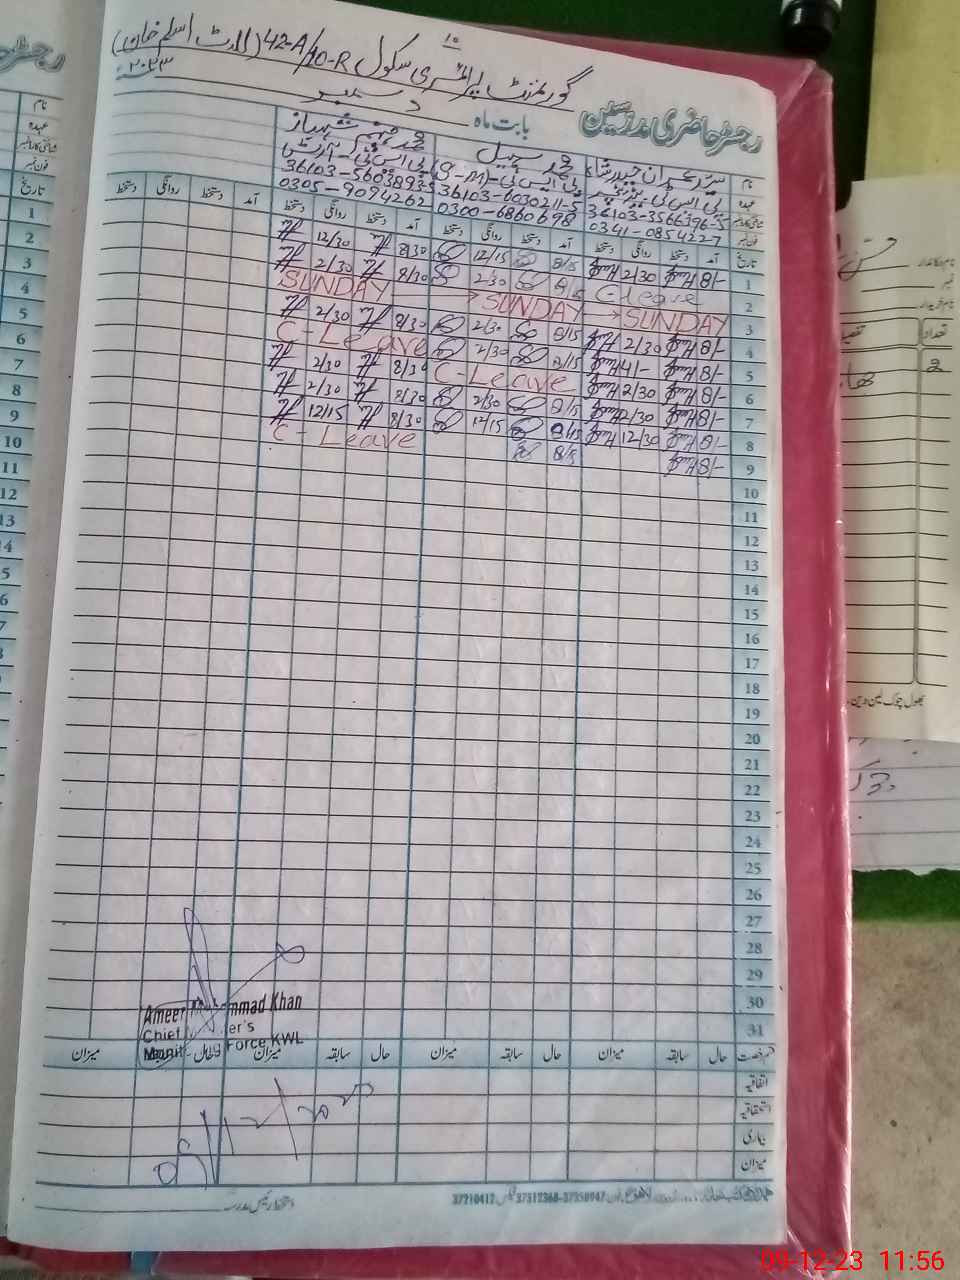 گورنمنٹ پرائمری سکول 42-A/10-R
رجسٹر حاضری مدرسین
بابت ماہ دسمبر ۲۰۲۳
نام سید عمران حیدر شاہ محمد سہیل محمد شہباز
عہدہ پی ایس ٹی پی ایس ٹی پی ایس ٹی
شناختی کارڈ نمبر 36103-3566396-5 36103-6030211-5
فون نمبر 0341-0854227 0300-6860698 0305-9094262
تاریخ آمد دستخط روانگی دستخط آمد دستخط روانگی دستخط آمد دستخط روانگی دستخط آمد دستخط روانگی دستخط
1 8/- 12/30 8/15 12/15 8/30 12/30
2 C-leave 8/15 2/30 8/30 2/30
3 SUNDAY SUNDAY SUNDAY
4 8/- 2/30 8/15 2/30 8/30 2/30
5 8/- 4/- 8/15 2/30 C-Leave
6 8/- 2/30 C-Leave 8/30 2/30
7 8/- 2/30 8/15 2/30 8/30 2/30
8 8/- 12/30 8/15 12/15 8/30 12/15
9 8/- 8/15 C-Leave
10
11
12
13
14
15
16
17
18
19
20
21
22
23
24
25
26
27
28
29
30
31
Ameer Muhammad Khan
Chief Minister's
Monitoring Force KWL
قسم رخصت حال سابقہ میزان حال سابقہ میزان حال سابقہ میزان حال میزان
اتفاقیہ
استحقاقیہ
بیماری
میزان
دستخط رئیس مدرسہ
37312368-37350947
37210412
نام
عہدہ
شناختی کارڈ نمبر
فون نمبر
تاریخ
1
2
3
4
5
6
7
8
9
10
11
12
13
تعداد
بھول چوک لین دین
09-12-23 11:56